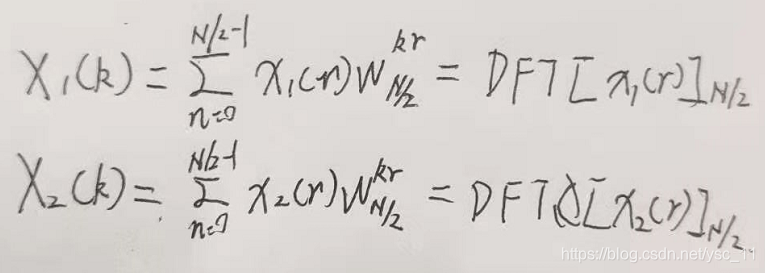 X₁(k) = \sum_{n=0}^{N/2-1} x₁(r) W_{N/2}^{kr} = DFT[x₁(r)]_{N/2}
X₂(k) = \sum_{n=0}^{N/2-1} x₂(r) W_{N/2}^{kr} = DFT[x₂(r)]_{N/2}
https://blog.csdn.net/ysc_11